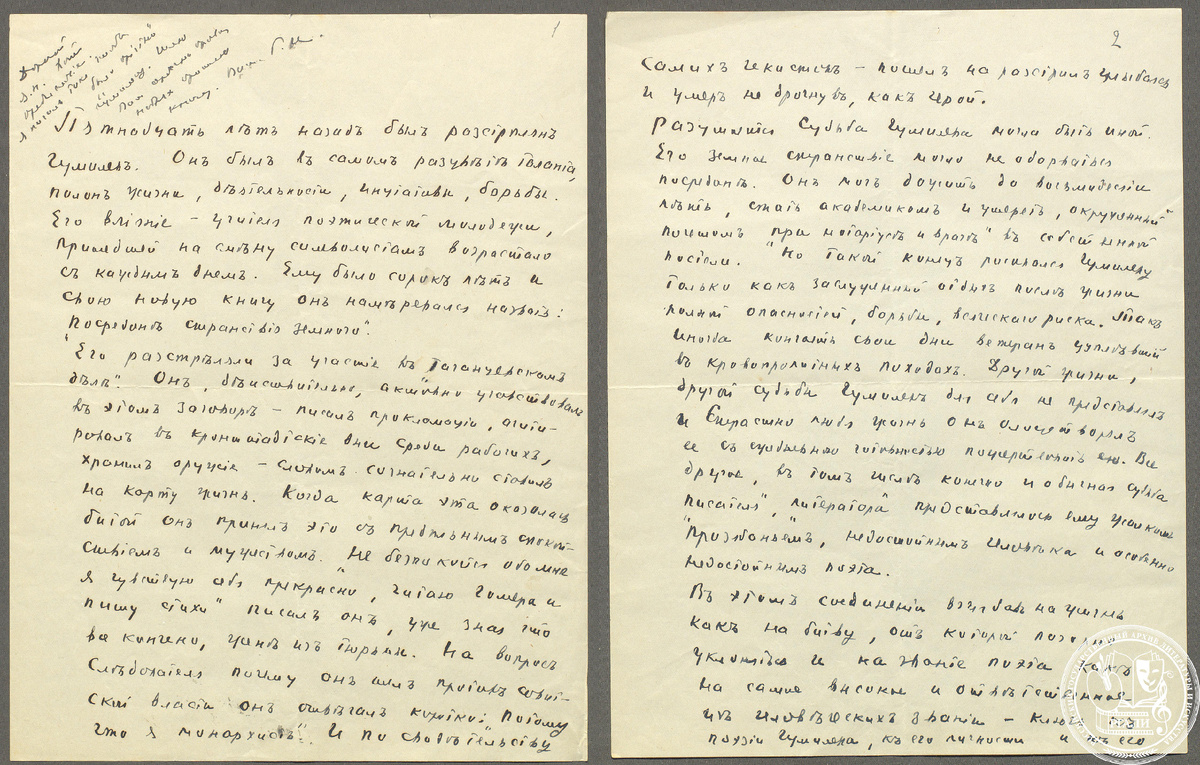 1
Пятнадцать лѣтъ назадъ былъ разстрѣлянъ
Гумилевъ. Онъ былъ въ самомъ разцвѣтѣ таланта,
полонъ жизни, дѣятельности, инціативы, борьбы.
Его вліяніе — учителя поэтической молодежи,
пришедшей на смѣну символистамъ возрастало
съ каждымъ днемъ. Ему было сорокъ лѣтъ и
свою новую книгу онъ намѣревался назвать:
"Посрединѣ странствія земного".
Его разстрѣляли за участіе въ Таганцевскомъ
дѣлѣ". Онъ, дѣйствительно, активно участвовалъ
въ этомъ заговорѣ — писалъ прокламаціи, агити-
ровалъ въ кронштадтскіе дни среди рабочихъ,
хранилъ оружіе — словомъ сознательно ставилъ
на карту жизнь. Когда карта эта оказалась
битой онъ принялъ это съ предѣльнымъ спокой-
ствіемъ и мужествомъ. "Не безпокойся обо мнѣ
я чувствую себя прекрасно, читаю Гомера и
пишу стихи" писалъ онъ, уже зная что
все кончено, изъ тюрьмы. На вопросъ
слѣдователя почему онъ шелъ противъ совѣт-
ской власти онъ отвѣчалъ "Потому
что я монархистъ". И по свидѣтельству
2
самихъ чекистовъ — пошелъ на разстрѣлъ улыбаясь
и умеръ не дрогнувъ, какъ герой.
Разумѣется судьба Гумилева могла быть иной.
Его земное странствіе могло не оборваться
посрединѣ. Онъ могъ дожить до восьмидесяти
лѣтъ, стать академикомъ и умереть, окруженный
почетомъ "при нотаріусѣ и врачѣ" въ собственной
постели. Но такой конецъ рисовался Гумилеву
только какъ заслуженный отдыхъ послѣ жизни
полной опасностей, борьбы, всяческаго риска. Такъ
иногда кончаетъ свои дни ветеранъ уцѣлѣвшій
въ кровопролитныхъ походахъ. Другой жизни,
другой судьбы Гумилевъ для себя не представлялъ
и страстно любя жизнь онъ
ее съ готовностью пожертвовать ею. Все
другое, въ томъ числѣ конечно и обычная судьба
писателя", "литератора" представлялось ему
"прозябаньемъ, недостойнымъ человѣка и особенно
недостойнымъ поэта.
Въ этомъ соединеніи взгляда на жизнь
какъ на битву, отъ которой позорно
уклоняться и на званіе поэта какъ
на самое высокое и отвѣтственное
изъ человѣческихъ званій — ключъ къ
поэзіи Гумилева, къ его личности и къ его